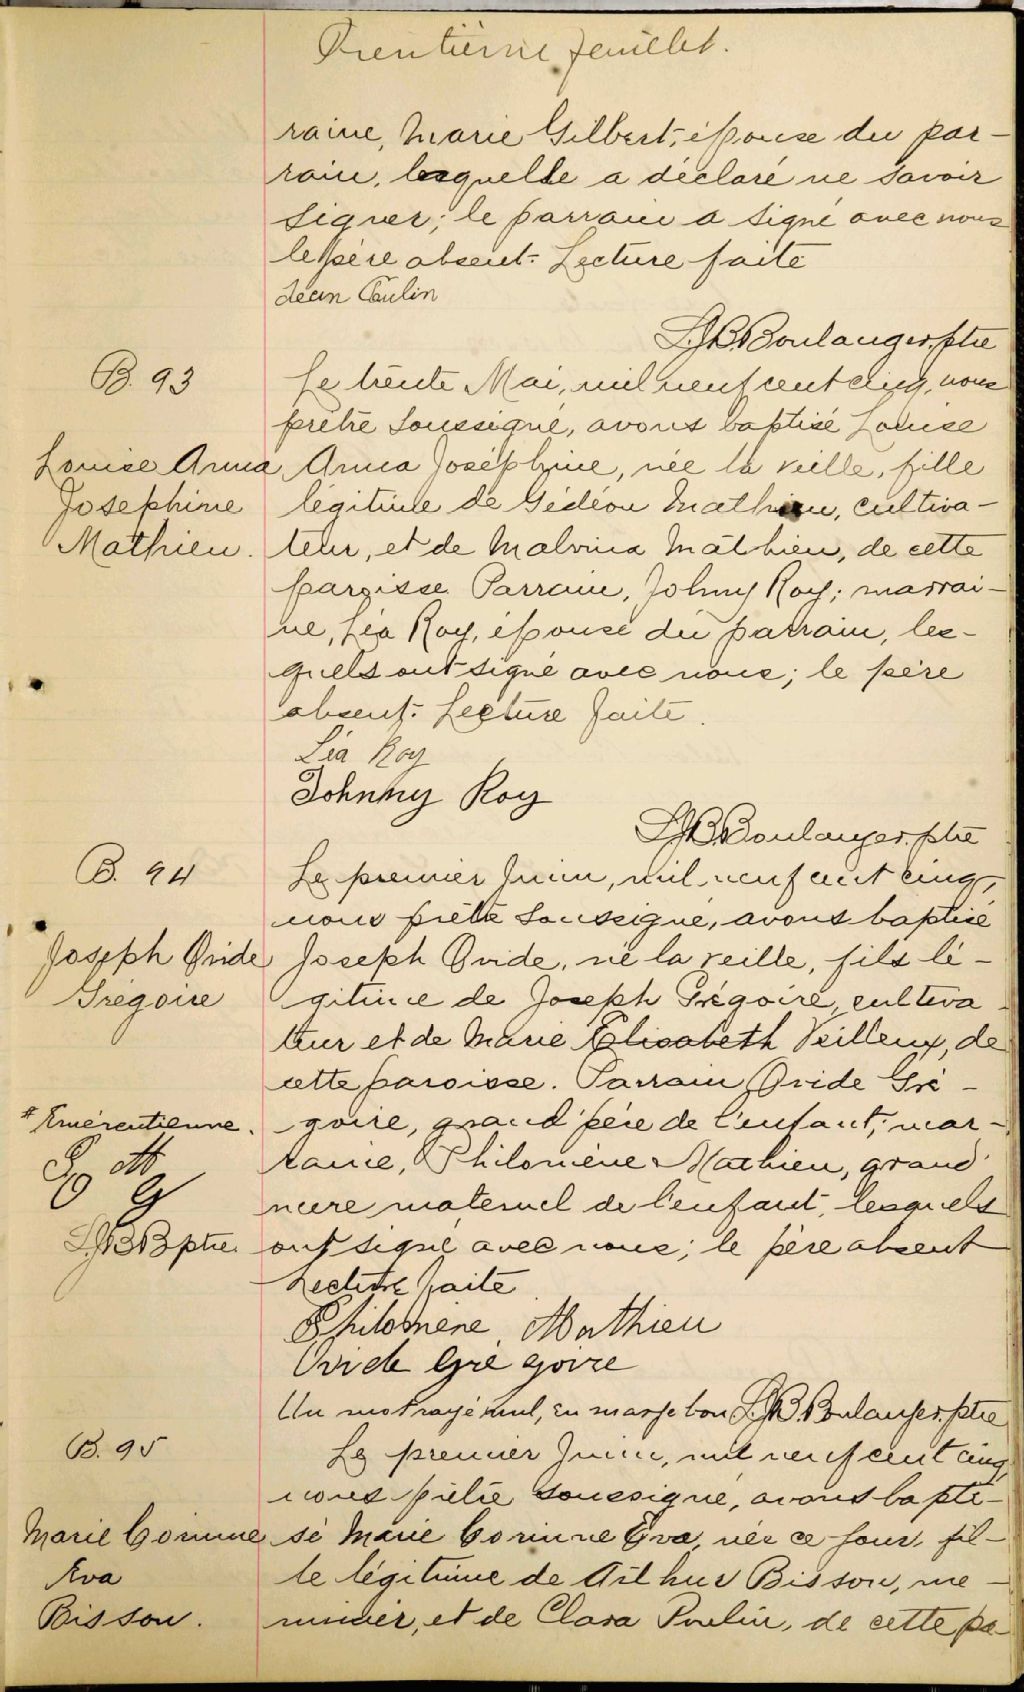 Trentième feuillet.
raine, Marie Gilbert, épouse du par-
rain, lesquelle a déclaré ne savoir
signer; le parrain a signé avec nous
le père absent. Lecture faite
Jean Poulin
L.J.B. Boulanger, ptre
B. 93
Louise Anna
Josephine
Mathieu.
Le trente Mai, mil neuf cent cinq, nous
prêtre soussigné, avons baptisé Louise
Anna Joséphine, née la veille, fille
légitime de Gédéon Mathieu, cultiva-
teur, et de Malvina Mathieu, de cette
paroisse. Parrain, Johny Roy; marrai-
ne, Léa Roy, épouse du parrain, les-
quels ont signé avec nous; le père
absent. Lecture faite.
Léa Roy
Johnny Roy
L.J.B. Boulanger, ptre
B. 94
Joseph Ovide
Grégoire
Le premier Juin, mil neuf cent cinq,
nous prêtre soussigné, avons baptisé
Joseph Ovide, né la veille, fils lé-
gitime de Joseph Grégoire, cultiva-
teur et de Marie Elisabeth Veilleux, de
cette paroisse. Parrain Ovide Gré-
goire, grand'père de l'enfant; mar-
raine, Philomène Mathieu, grand'
mère maternel de l'enfant, lesquels
ont signé avec nous; le père absent
Lecture faite
* Emérentienne.
O G
M
G
L.J.B.B ptre.
Philomène Mathieu
Ovide Gré goire
Un mot rayé nul, en marge bon L.J.B. Boulanger, ptre
B. 95
Marie Corinne
Eva
Bisson.
Le premier Juin, mil neuf cent cinq,
nous prêtre soussigné, avons bapti-
sé Marie Corinne Eva, née ce jour, fil-
le légitime de Arthur Bisson, me-
nuisier, et de Clara Poulin, de cette pa-